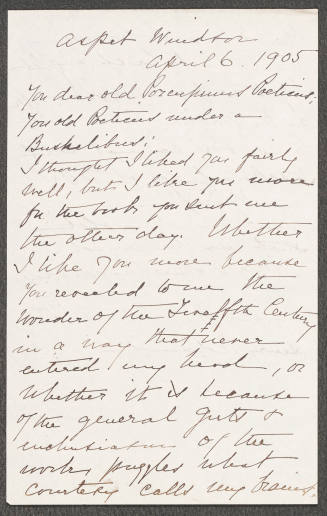 Aspet Windsor
April 6. 1905
You dear old Porcupinus Poeticus;
You old Poeticus under a
Bushelibus;
I thought I liked you fairly
well, but I like you more
for the book you sent me
the other day. Whether
I like you more because
You revealed to me the
wonder of the Twelfth Century
in a way that never
entered my head, or
whether it is because
of the general guts &
enthusiasm of the
work, puzzles what
courtesy calls my brains.